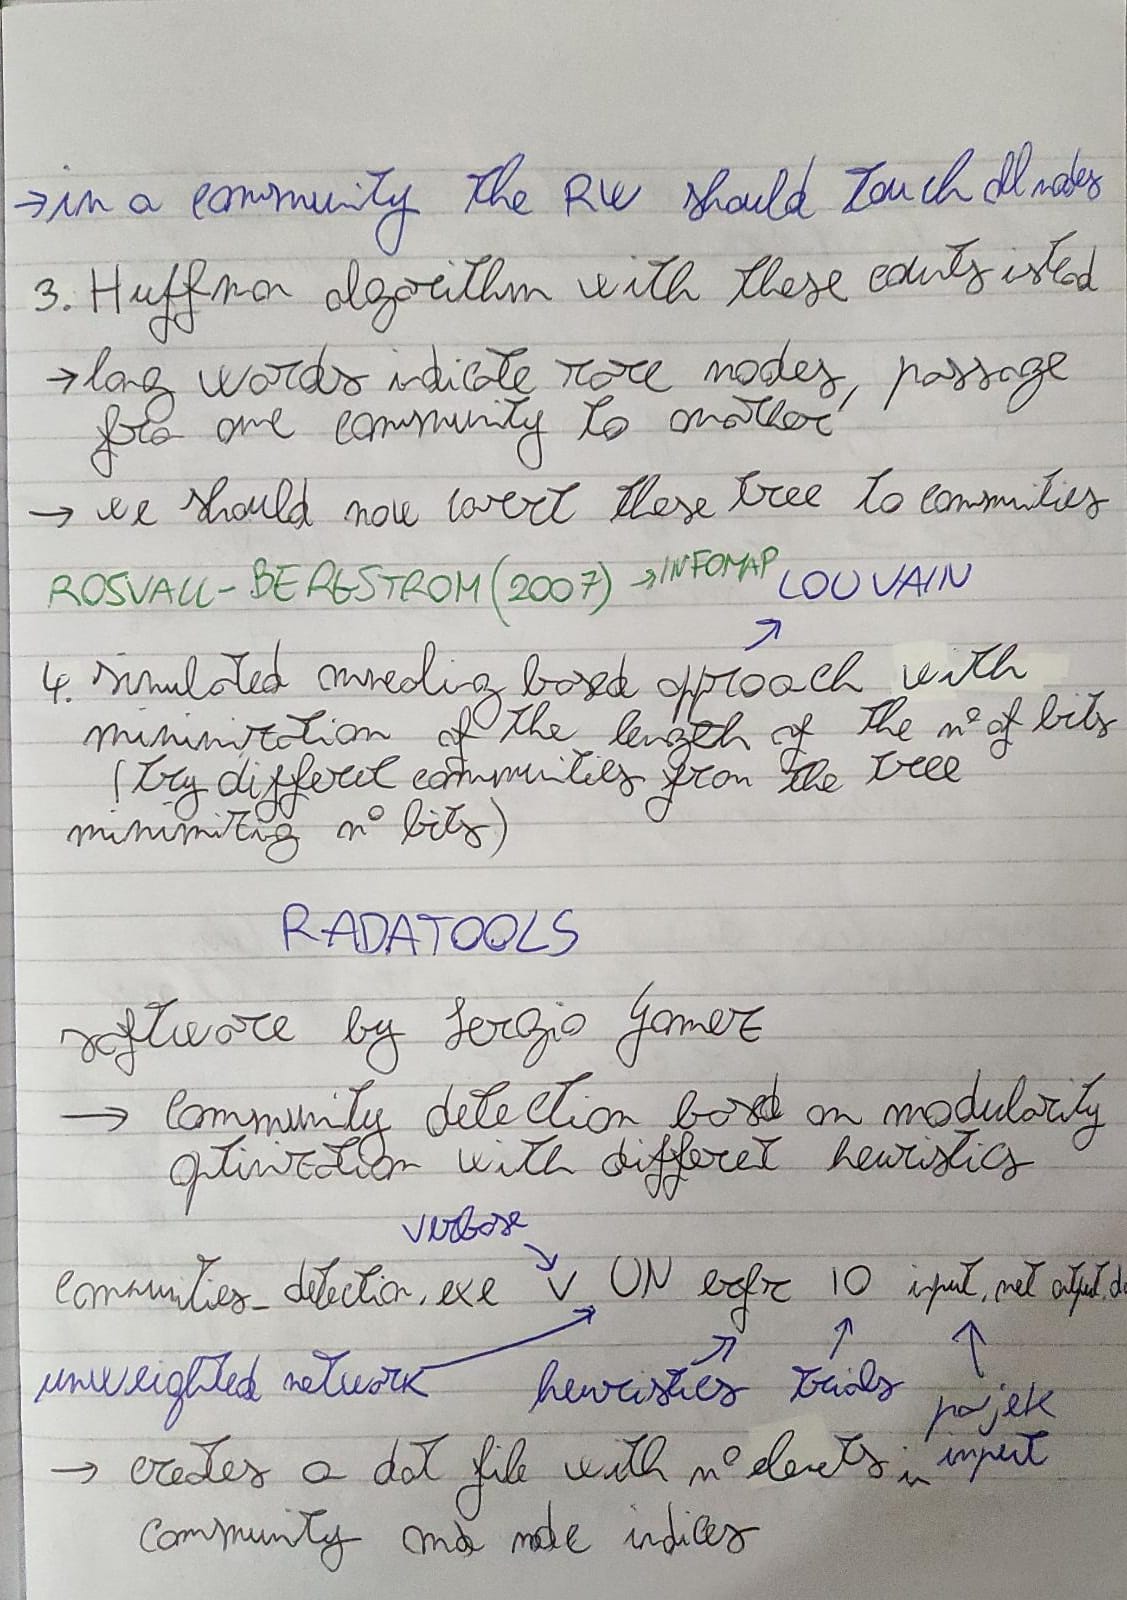 → in a community the RW should touch all nodes
3. Huffman algorithm with these counts
→ long words indicate rare nodes, passage
fro one community to another
→ we should now covert these tree to communities
ROSVALL-BERGSTROM (2007) → INFOMAP LOUVAIN
4. simulated annealing based approach with
minimization of the length of the n° of bits
(try different communities from the tree
minimizing n° bits)
RADATOOLS
software by Sergio Gomez
→ community detection based on modularity
optimization with different heuristics
verbose
communities_detection.exe V UN erfr 10 input.net output.da
unweighted network heuristics trials pajek
input
→ creates a dat file with n° elements in
community and node indices